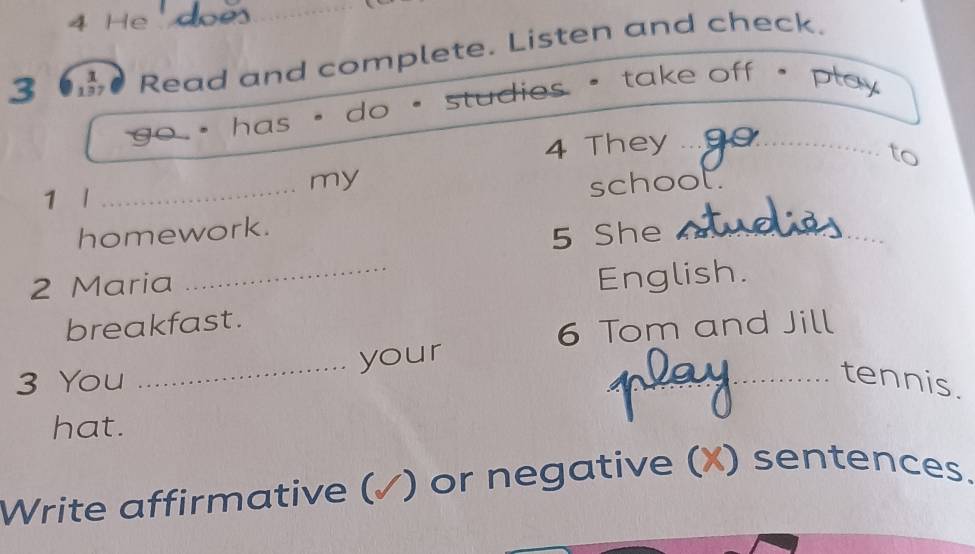 4 He does
3 1 137 Read and complete. Listen and check.
go • has • do • studies • take off • play
1 I ............ my
homework.
2 Maria ............
breakfast.
3 You ............ your
hat.
4 They go ............ to
school.
5 She studies ....
English.
6 Tom and Jill
play ............ tennis.
Write affirmative (✓) or negative (X) sentences.